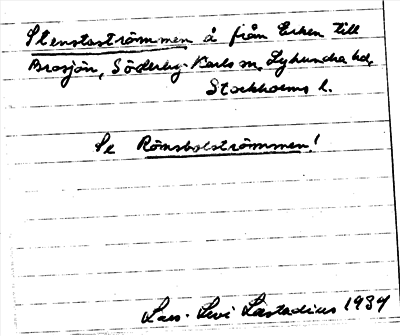 Stenstaströmmen å från Erken till
Brosjön, Söderby-Karls sn, Lyhundra hd,
Stockholms l.
Se Römsbolströmmen!
Lars-Levi Læstadius 1934